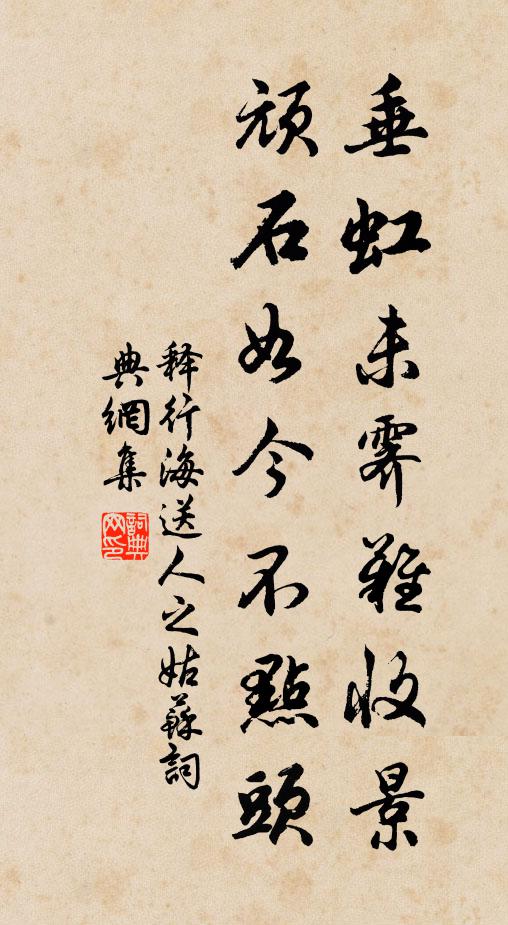 垂虹未霽難收景
頑石如今不點頭
释行海送人之姑蘇詞
典網集
詞典網印